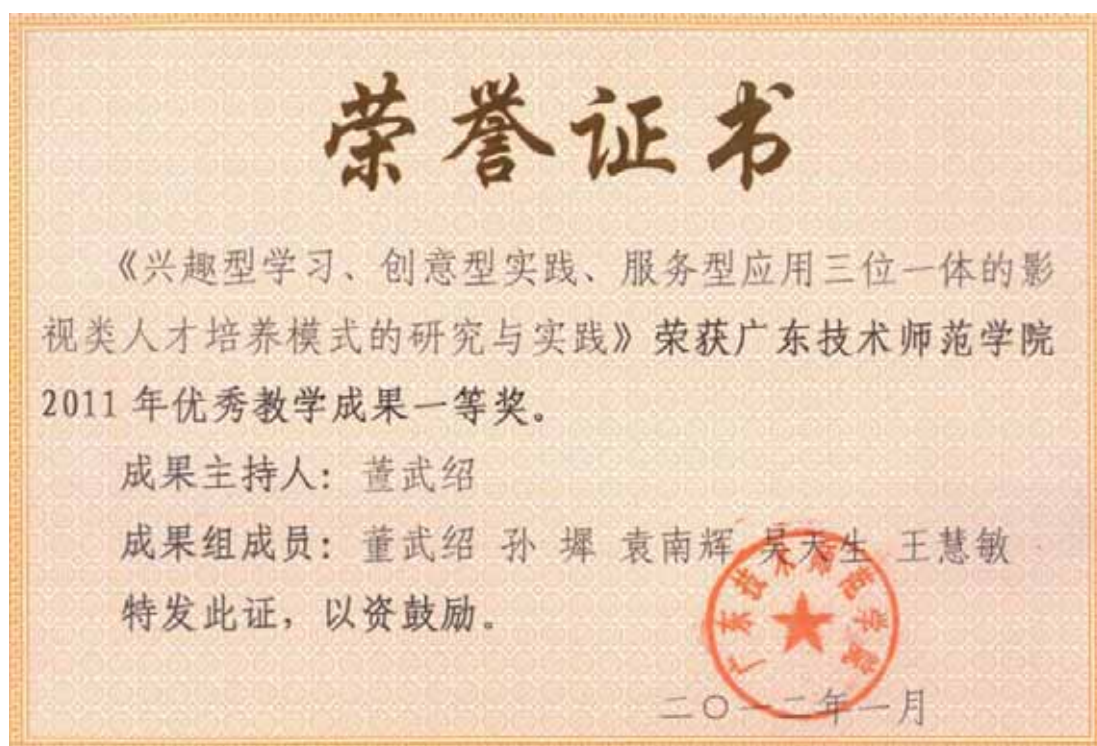 荣誉证书
《兴趣型学习、创意型实践、服务型应用三位一体的影
视类人才培养模式的研究与实践》荣获广东技术师范学院
2011 年优秀教学成果一等奖。
成果主持人：董武绍
成果组成员：董武绍 孙 墀 袁南辉 吴天生 王慧敏
特发此证，以资鼓励。
广东技术师范学院
二○一二年一月